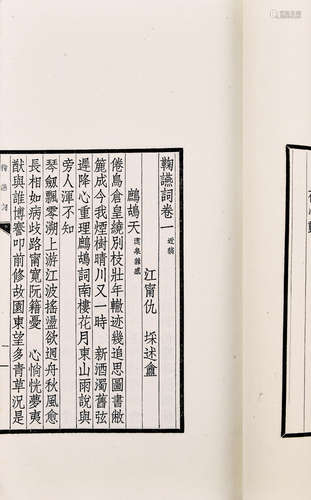 鞠讌詞卷一 近稿
江甯仇 埰述盦
鷓鴣天
倦鳥倉皇繞别枝壯年轍迹幾追思圖書敝
簏成今我煙樹晴川又一時 新酒濁舊弦
遲降心重理鷓鴣詞南樓花月東山雨說與
旁人渾不知
琴劍飄零溯上游江波搖盪欲迴舟秋風愈
長相如病歧路甯寬阮籍憂 心惝恍夢夷
猷與誰博謇叩前修故園東望多青草況是
鞠讌詞
一